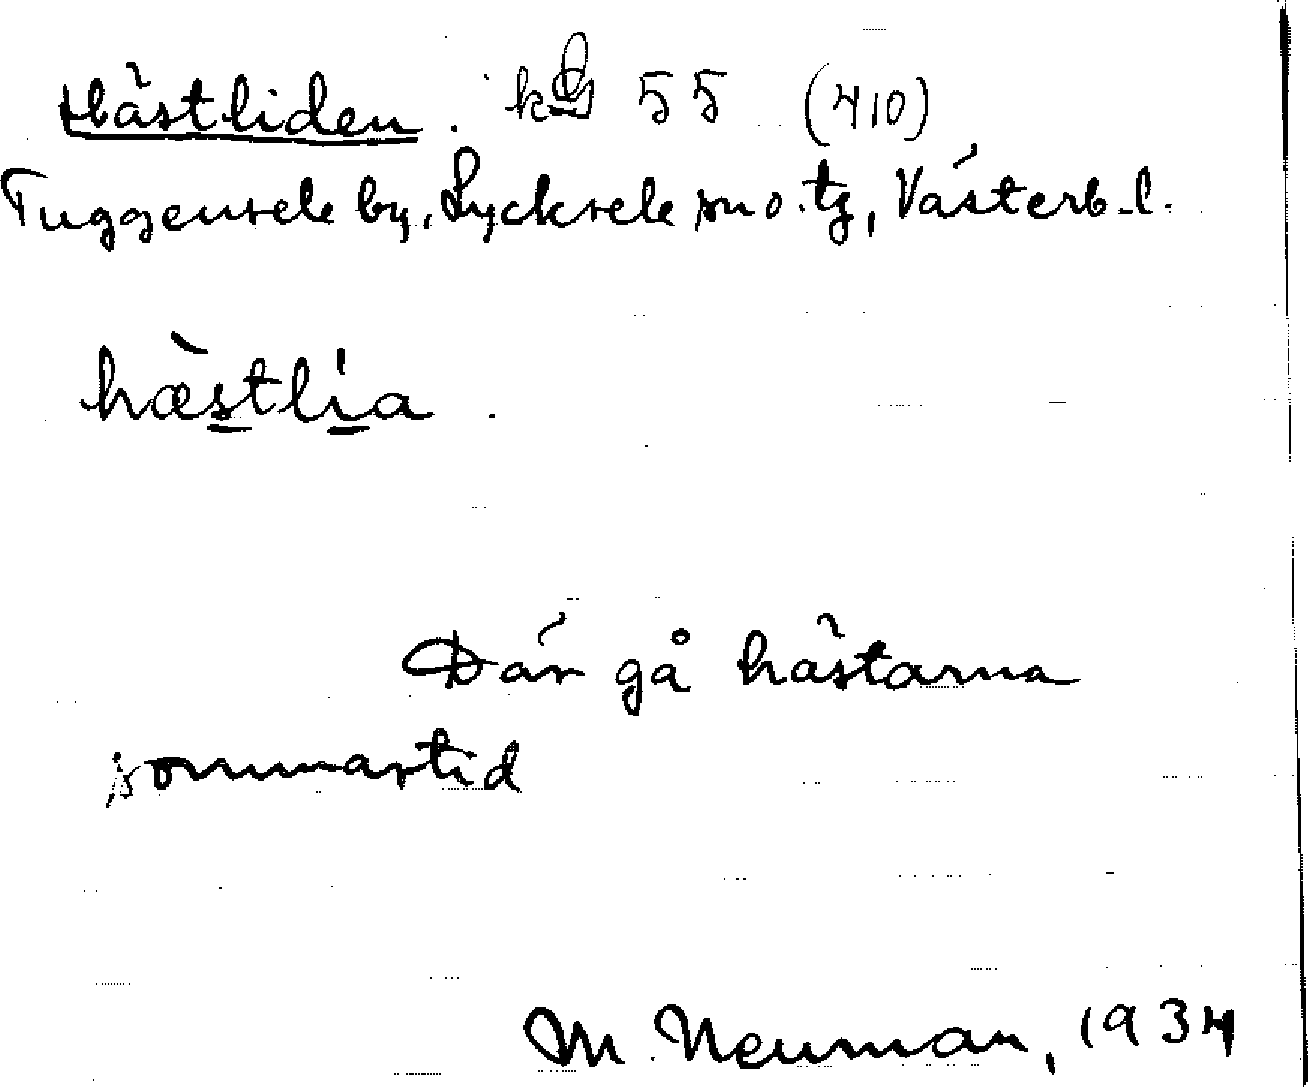 Hästliden. 55 (410)
Tuggensele by, Lycksele sn o. tg, Västerb. l.
hæ̀stlı̍a.
Där gå hästarna
sommartid
M. Neuman, 1934